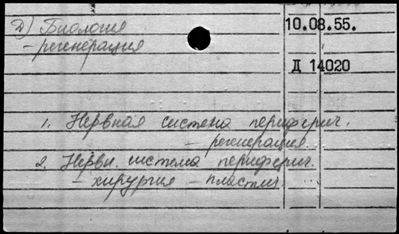 Д) Биология
- регенерация
10.08.55.
Д 14020
1. Нервная система периферич.
- регенерация
2. Нервн. система периферич.
- хирургия - пластич.